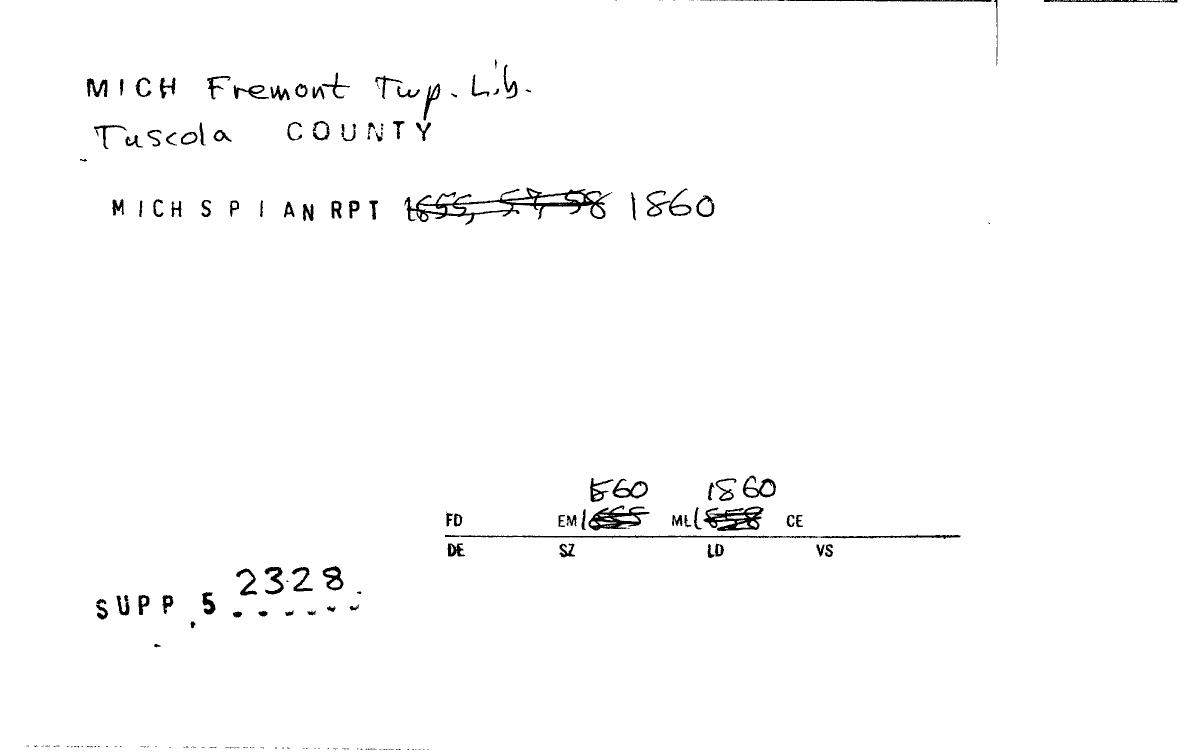 MICH Fremont Twp. Lib.
Tuscola COUNTY
MICH S P I AN RPT 1855, 57, 58 1860
1860 1860
FD EM 1855 ML 1858 CE
DE SZ LD VS
SUPP. 5 2328